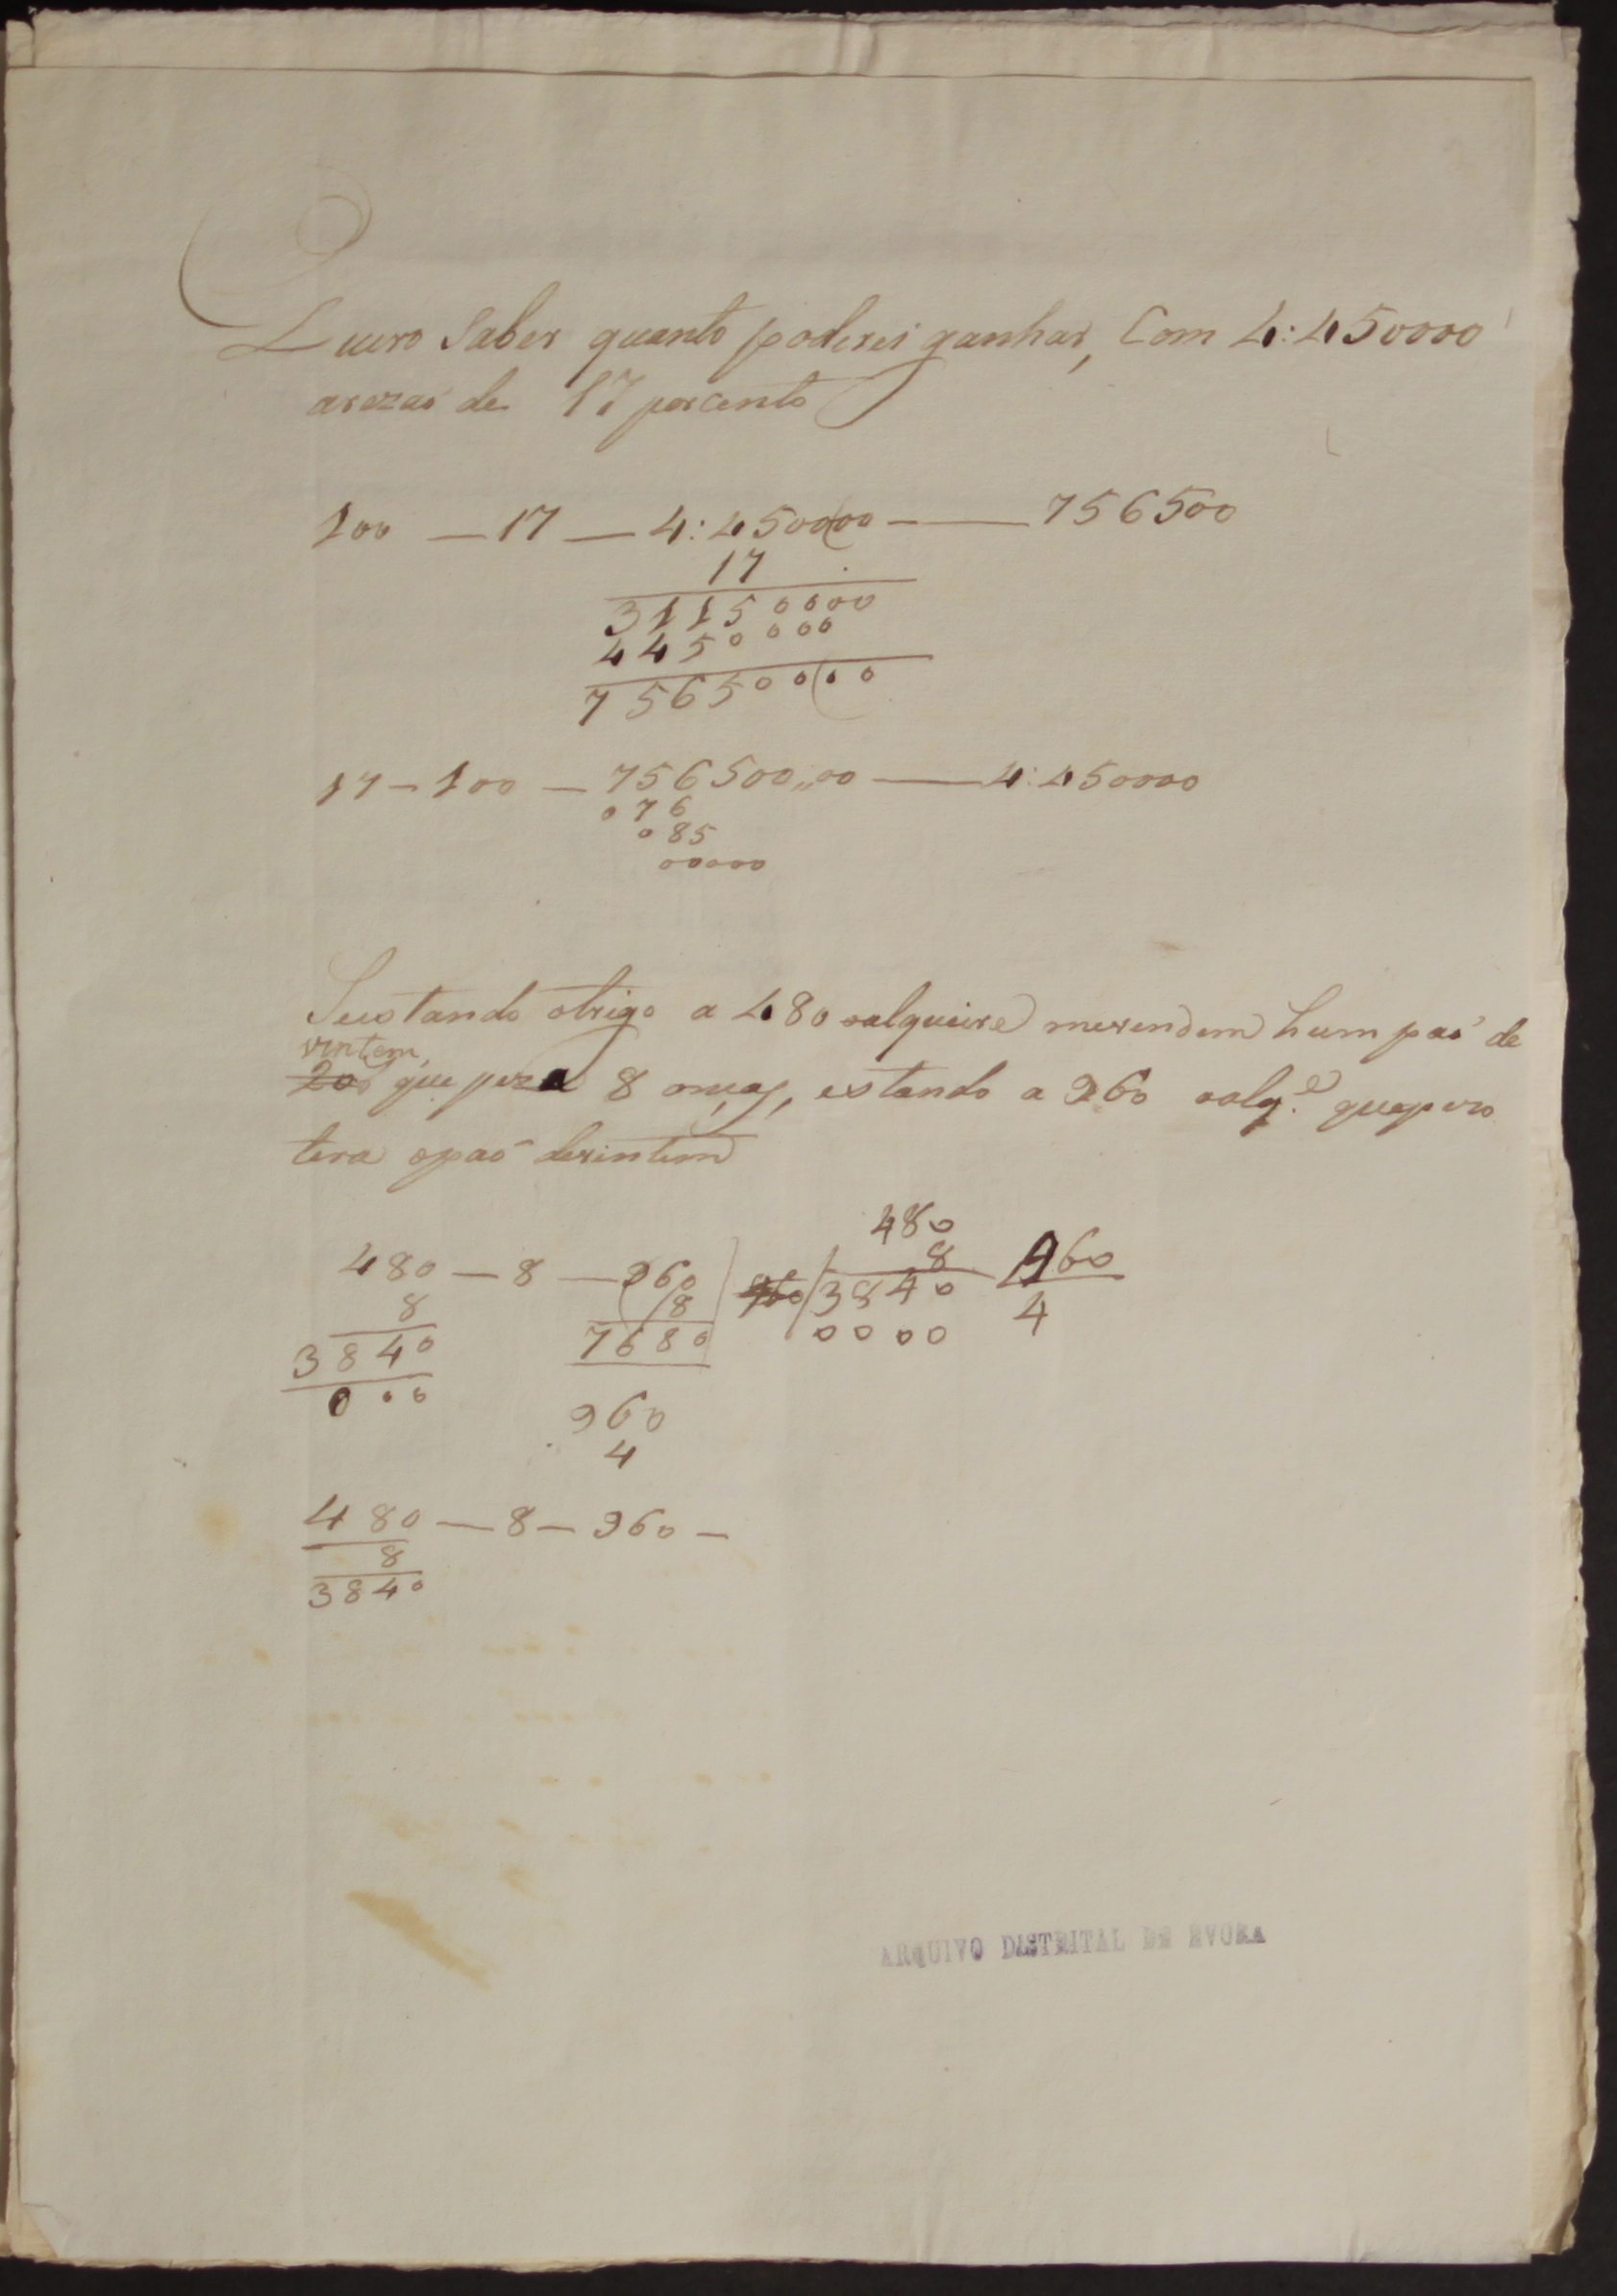 Quero Saber quanto poderei ganhar, Com 4:450000
arezaó de 17 porcento
100 — 17 — 4:450000(00 — 756500
17
311500000
4450000
7565000(00
17 — 100 — 756500,,00 — 4:450000
076
085
00000
Seestando otrigo a 480 oalqueire merendem hum paó de
vintem,
20 que peza 8 onças, estando a 960 oalq.e quepezo
tera opaó devintem
480 — 8 — 960
8
3840
000
8
7680
960
4
480
8
960/3840
0000
960
4
480 — 8 — 960 —
8
3840
ARQUIVO DISTRITAL DE EVORA